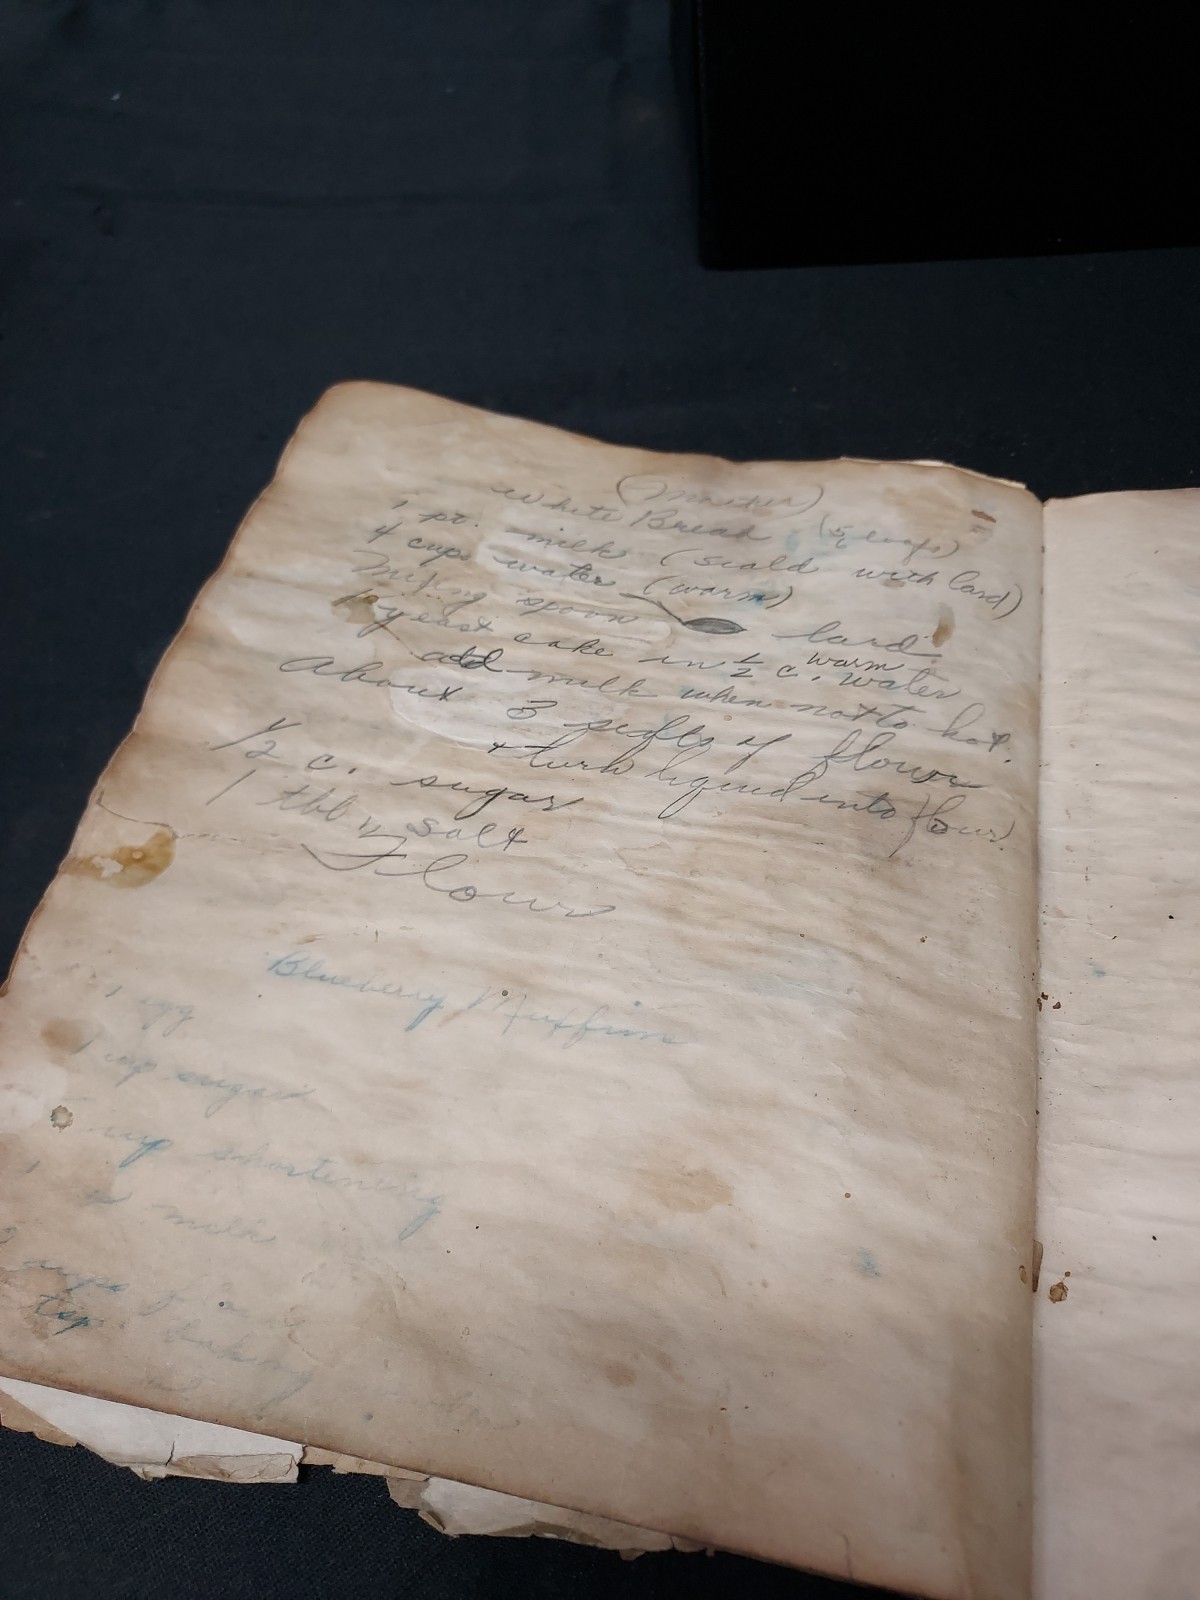 White Bread (5 loafs)
1 pt. milk (scald with lard)
4 cups water (warm)
Mixing spoon lard
yeast cake in 1/2 c. warm water
add milk when not to hot.
About 3 sifts of flour
+ turn liquid into flour)
1/2 c. sugar
1 tbl " salt
Flour
Blueberry Muffins
1 egg
1 cup sugar
cup shortening
1 milk
cups
tsp baking